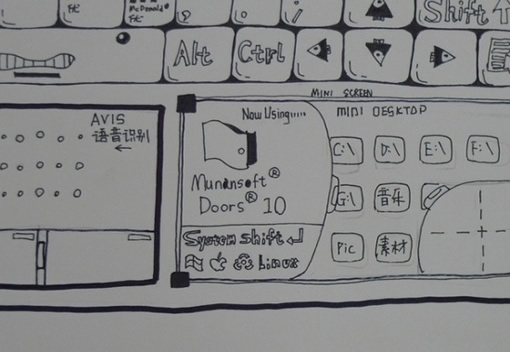 McDonald
Shift
Alt
Ctrl
MINI SCREEN
AVIS
语音识别
Now Using.....
MINI DESKTOP
C:\
D:\
E:\
F:\
Munansoft®
Doors® 10
G:\
音乐
System Shift
Linux
Pic
素材